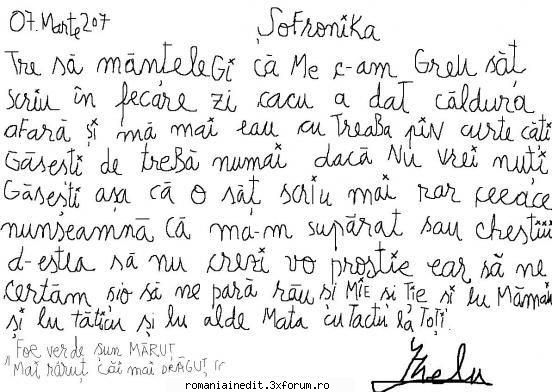 07.Marte 207
Șofronika
Tre să mânteleGi că Me c-am Greu săt
scriu în fecare zi cacu a dat căldura
afară și mă mai eau cu TreaBa piN curte căți
Găsești de treBă numai dacă Nu vrei nuți
Găsești așa că o săț scriu mai rar ceeace
nunșeamnă că ma-m supărat sau chestiii
d-estea să nu crezi vo prostie ear să ne
certăm șio să ne pară rău și MiE și Ție și lu Mămăii
și lu tăticu și lu alde Mata cu Tactu la ToȚi.
Foe verde sun MĂRUȚ
"Mai răruț căi mai DRĂGUȚ"
Ghelu
romaniainedit.3xforum.ro